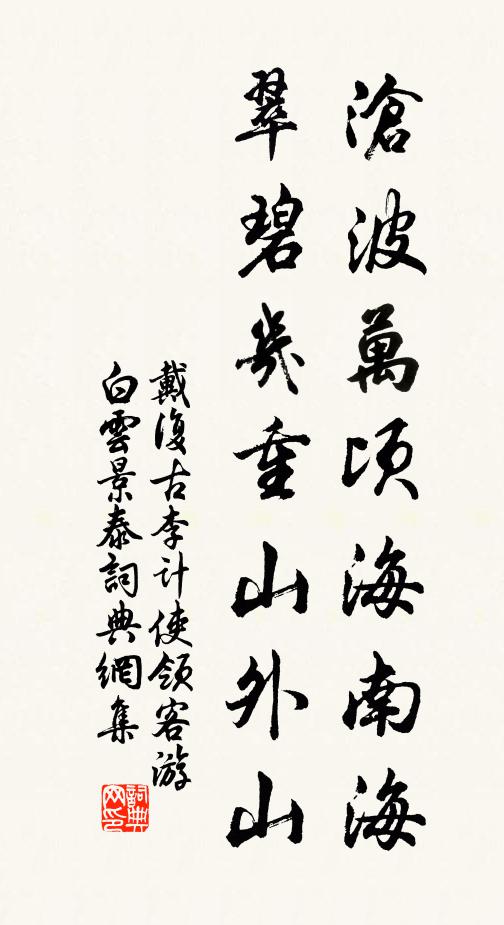 滄波萬頃海南海
翠碧幾重山外山
戴復古李計使領客游
白雲景泰詞典網集
詞典网印